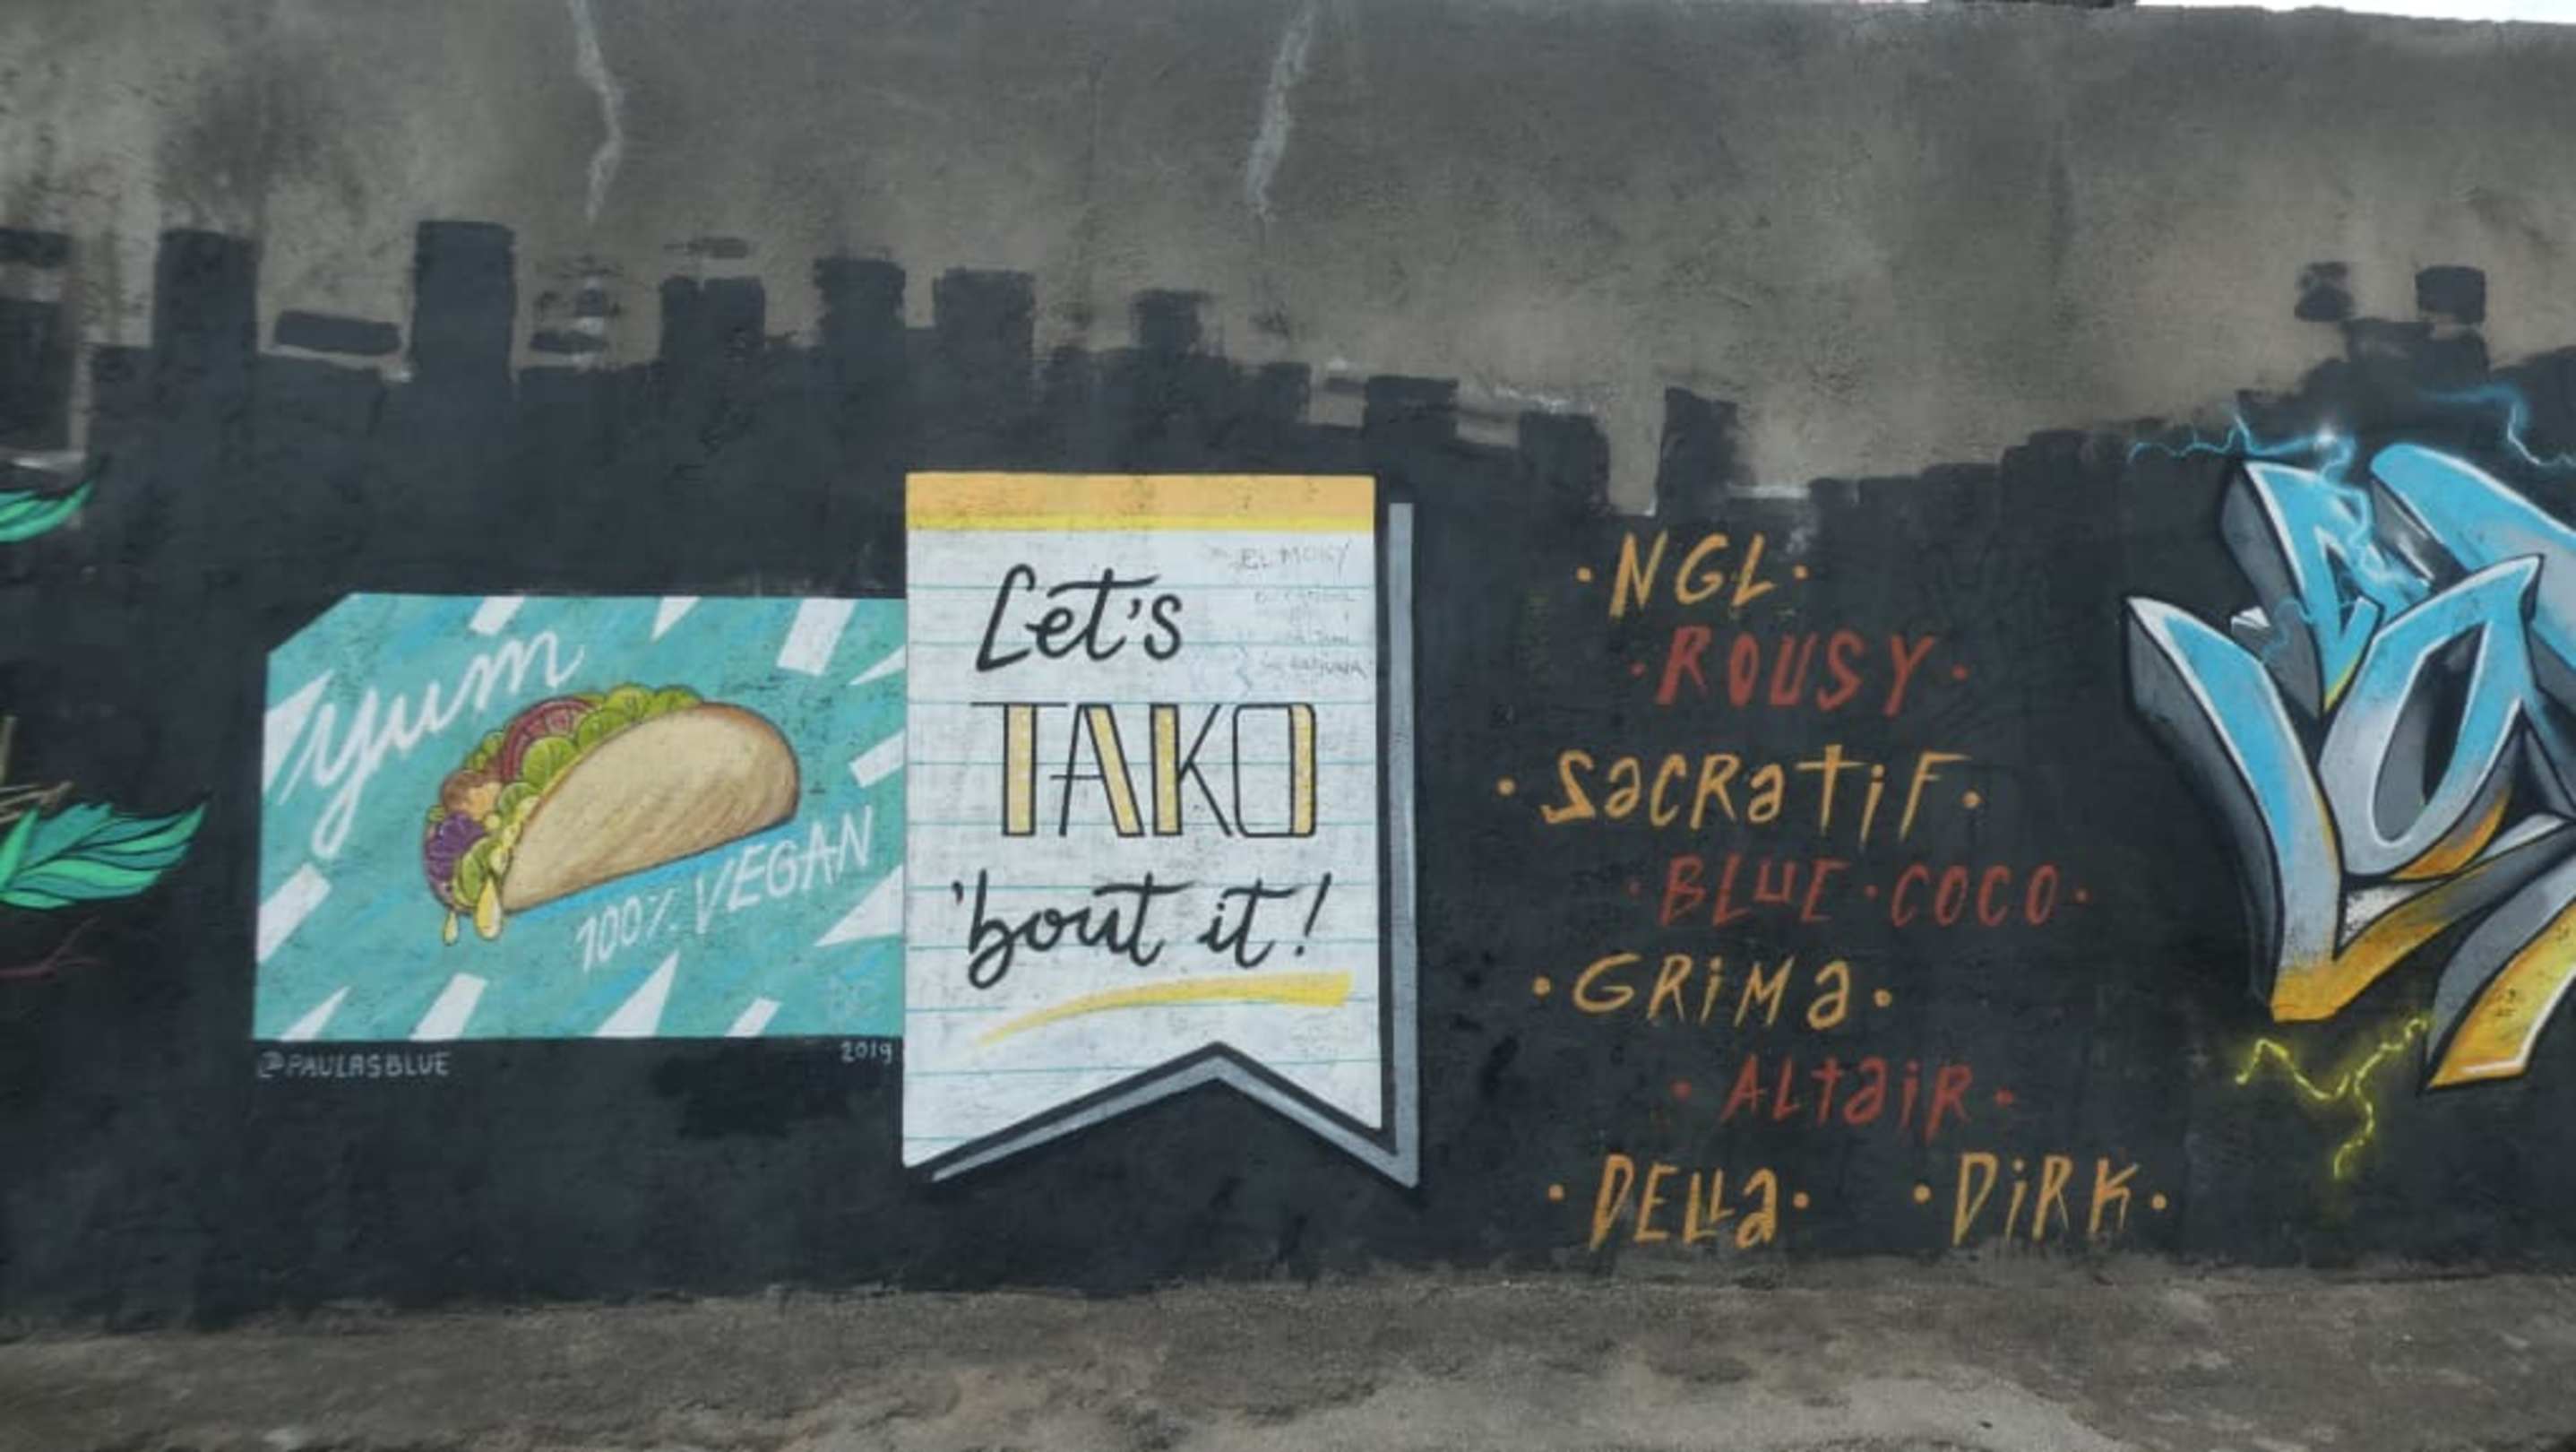 yum
100% VEGAN
@PAULASBLUE
2019
Let's
TAKO
'bout it!
EL MOKY
·NGL·
·ROUSY·
·SaCRatiF·
·BLUE·COCO·
·GRiMa·
·ALtaiR·
·DELLa· ·DiRK·